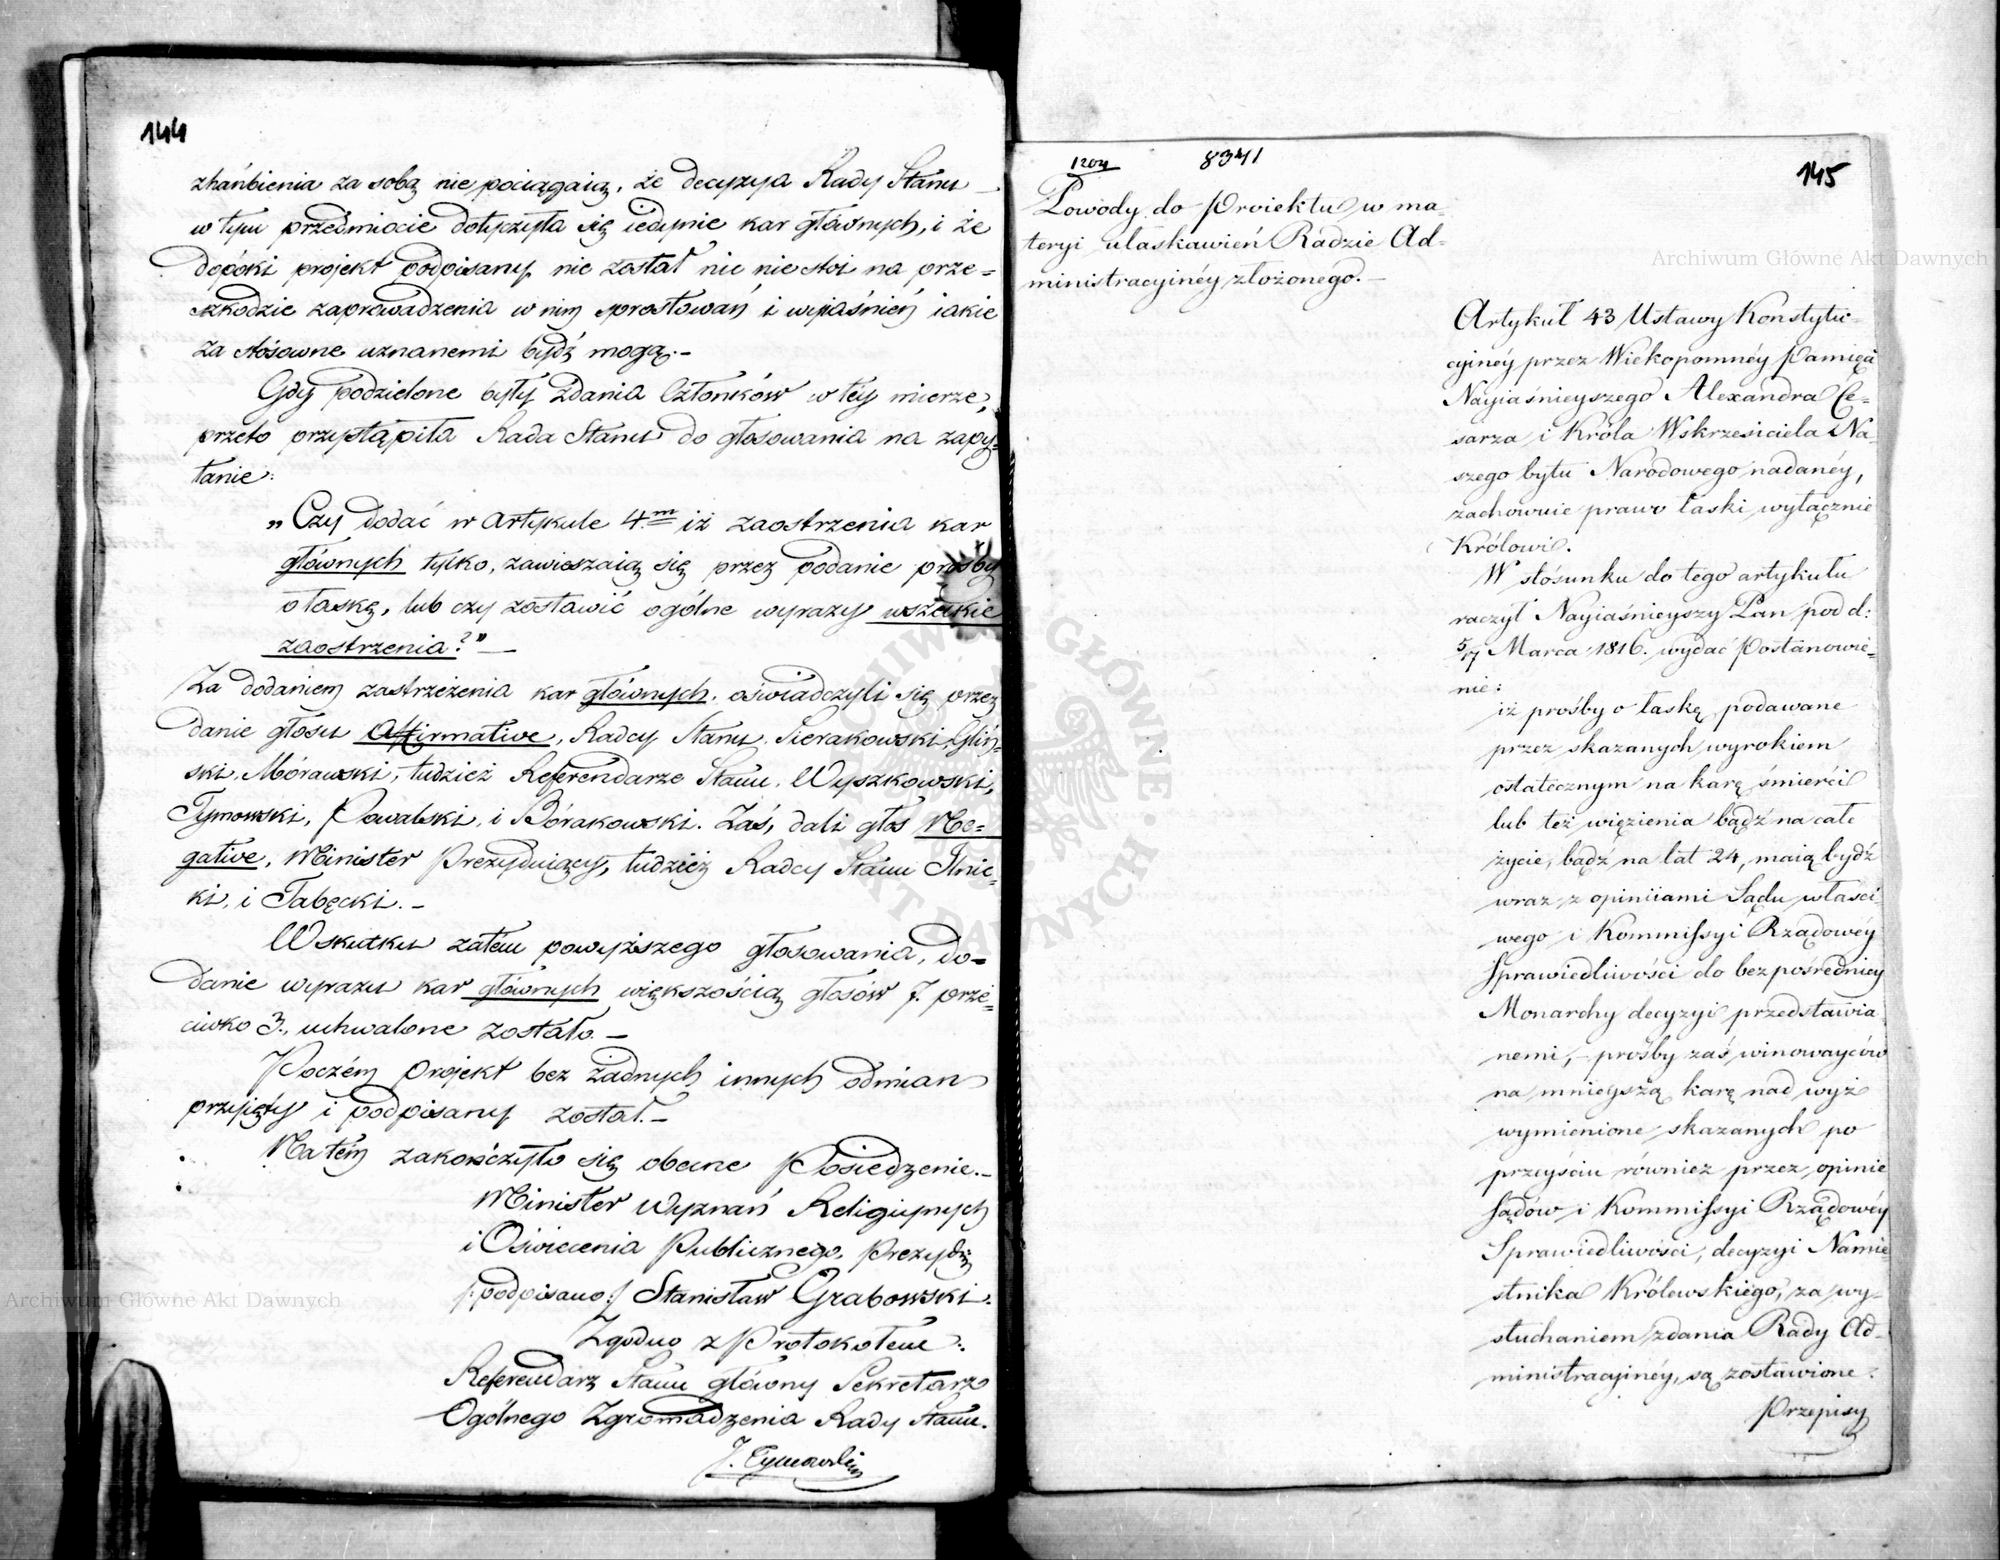 144
zhańbienia za sobą nie pociągaią, że decyzya Rady Stanu
w tym przedmiocie dotyczyła się iedynie kar głównych, i że
dopóki projekt podpisany nie został nic nie stoi na prze=
szkodzie zaprowadzenia w nim sprostowań i wyiaśnień iakie
za stósowne uznanemi bydź mogą.–
Gdy podzielone były zdania Członków w tey mierze,
przeto przystąpiła Rada Stanu do głosowania na zapy-
tanie:
„Czy dodać w Artykule 4m iż zaostrzenia kar
głównych tylko, zawieszaią się przez podanie prośby
o łaskę, lub czy zostawić ogólne wyrazy wszelkie
zaostrzenia?" —
Za dodaniem zastrzeżenia kar głównych, oświadczyli się przez
danie głosu Affirmative, Radcy Stanu, Sierakowski, Gliń-
ski, Mórawski, tudzież Referendarze Stanu, Wyszkowski,
Tymowski, i Bórakowski. Zaś, dali głos Ne=
gative, Minister Prezyduiący, tudzież Radcy Stanu
ki, i Tabęcki. –
W skutku zatém powyższego głosowania, do=
danie wyrazu kar głównych większością głosów 7. prze-
ciwko 3., uchwalone zostało. –
Poczém projekt bez żadnych innych odmian
przyięty i podpisany został. –
Na tém zakończyło się obecne Posiedzenie. –
Minister Wyznań Religiynych
i Oświecenia Publicznego, Prezyd:
/:podpisano:/ Stanisław Grabowski.
Zgodno z Protokołem:
Referendarz Stanu główny Sekretarz
Ogólnego Zgromadzenia Rady Stanu.
J. Tymowski
8341
145
Powody do Proiektu w ma-
teryi ułaskawień Radzie Ad-
ministracyinéy złożonego. –
Artykuł 43 Ustawy Konstytu-
cyinéy przez Wiekopomnéy Pamięci
Nayiaśnieyszego Alexandra Ce-
sarza i Króla Wskrzesiciela Na-
szego bytu Narodowego nadanéy,
zachowuie prawo łaski wyłącznie
Królowi.
W stósunku do tego artykułu
raczył Nayiaśnieyszy Pan pod d:
5/17 Marca 1816. wydać Postanowie-
nie:
iż prośby o łaskę podawane
przez skazanych wyrokiem
ostatecznym na karę śmierci
lub też więzienia bądź na całe
życie, bądź na lat 24, maią bydź
wraz z opiniiami Sądu właści
wego i Kommissyi Rządowéy
Sprawiedliwości do bezpośredniey
Monarchy decyzyi przedstawia
nemi, – prośby zaś winowayców
na mnieyszą karę nad wyż
wymienione skazanych po
przeyściu również przez opinie
Sądów i Kommissyi Rządowéy
Sprawiedliwości, decyzyi Namie
stnika Królewskiego, za wy-
słuchaniem zdania Rady Ad-
ministracyinéy, są zostawione.
Przepisy
Archiwum Główne Akt Dawnych
Archiwum Główne Akt Dawnych
ARCHIWUM GŁÓWNE AKT DAWNYCH